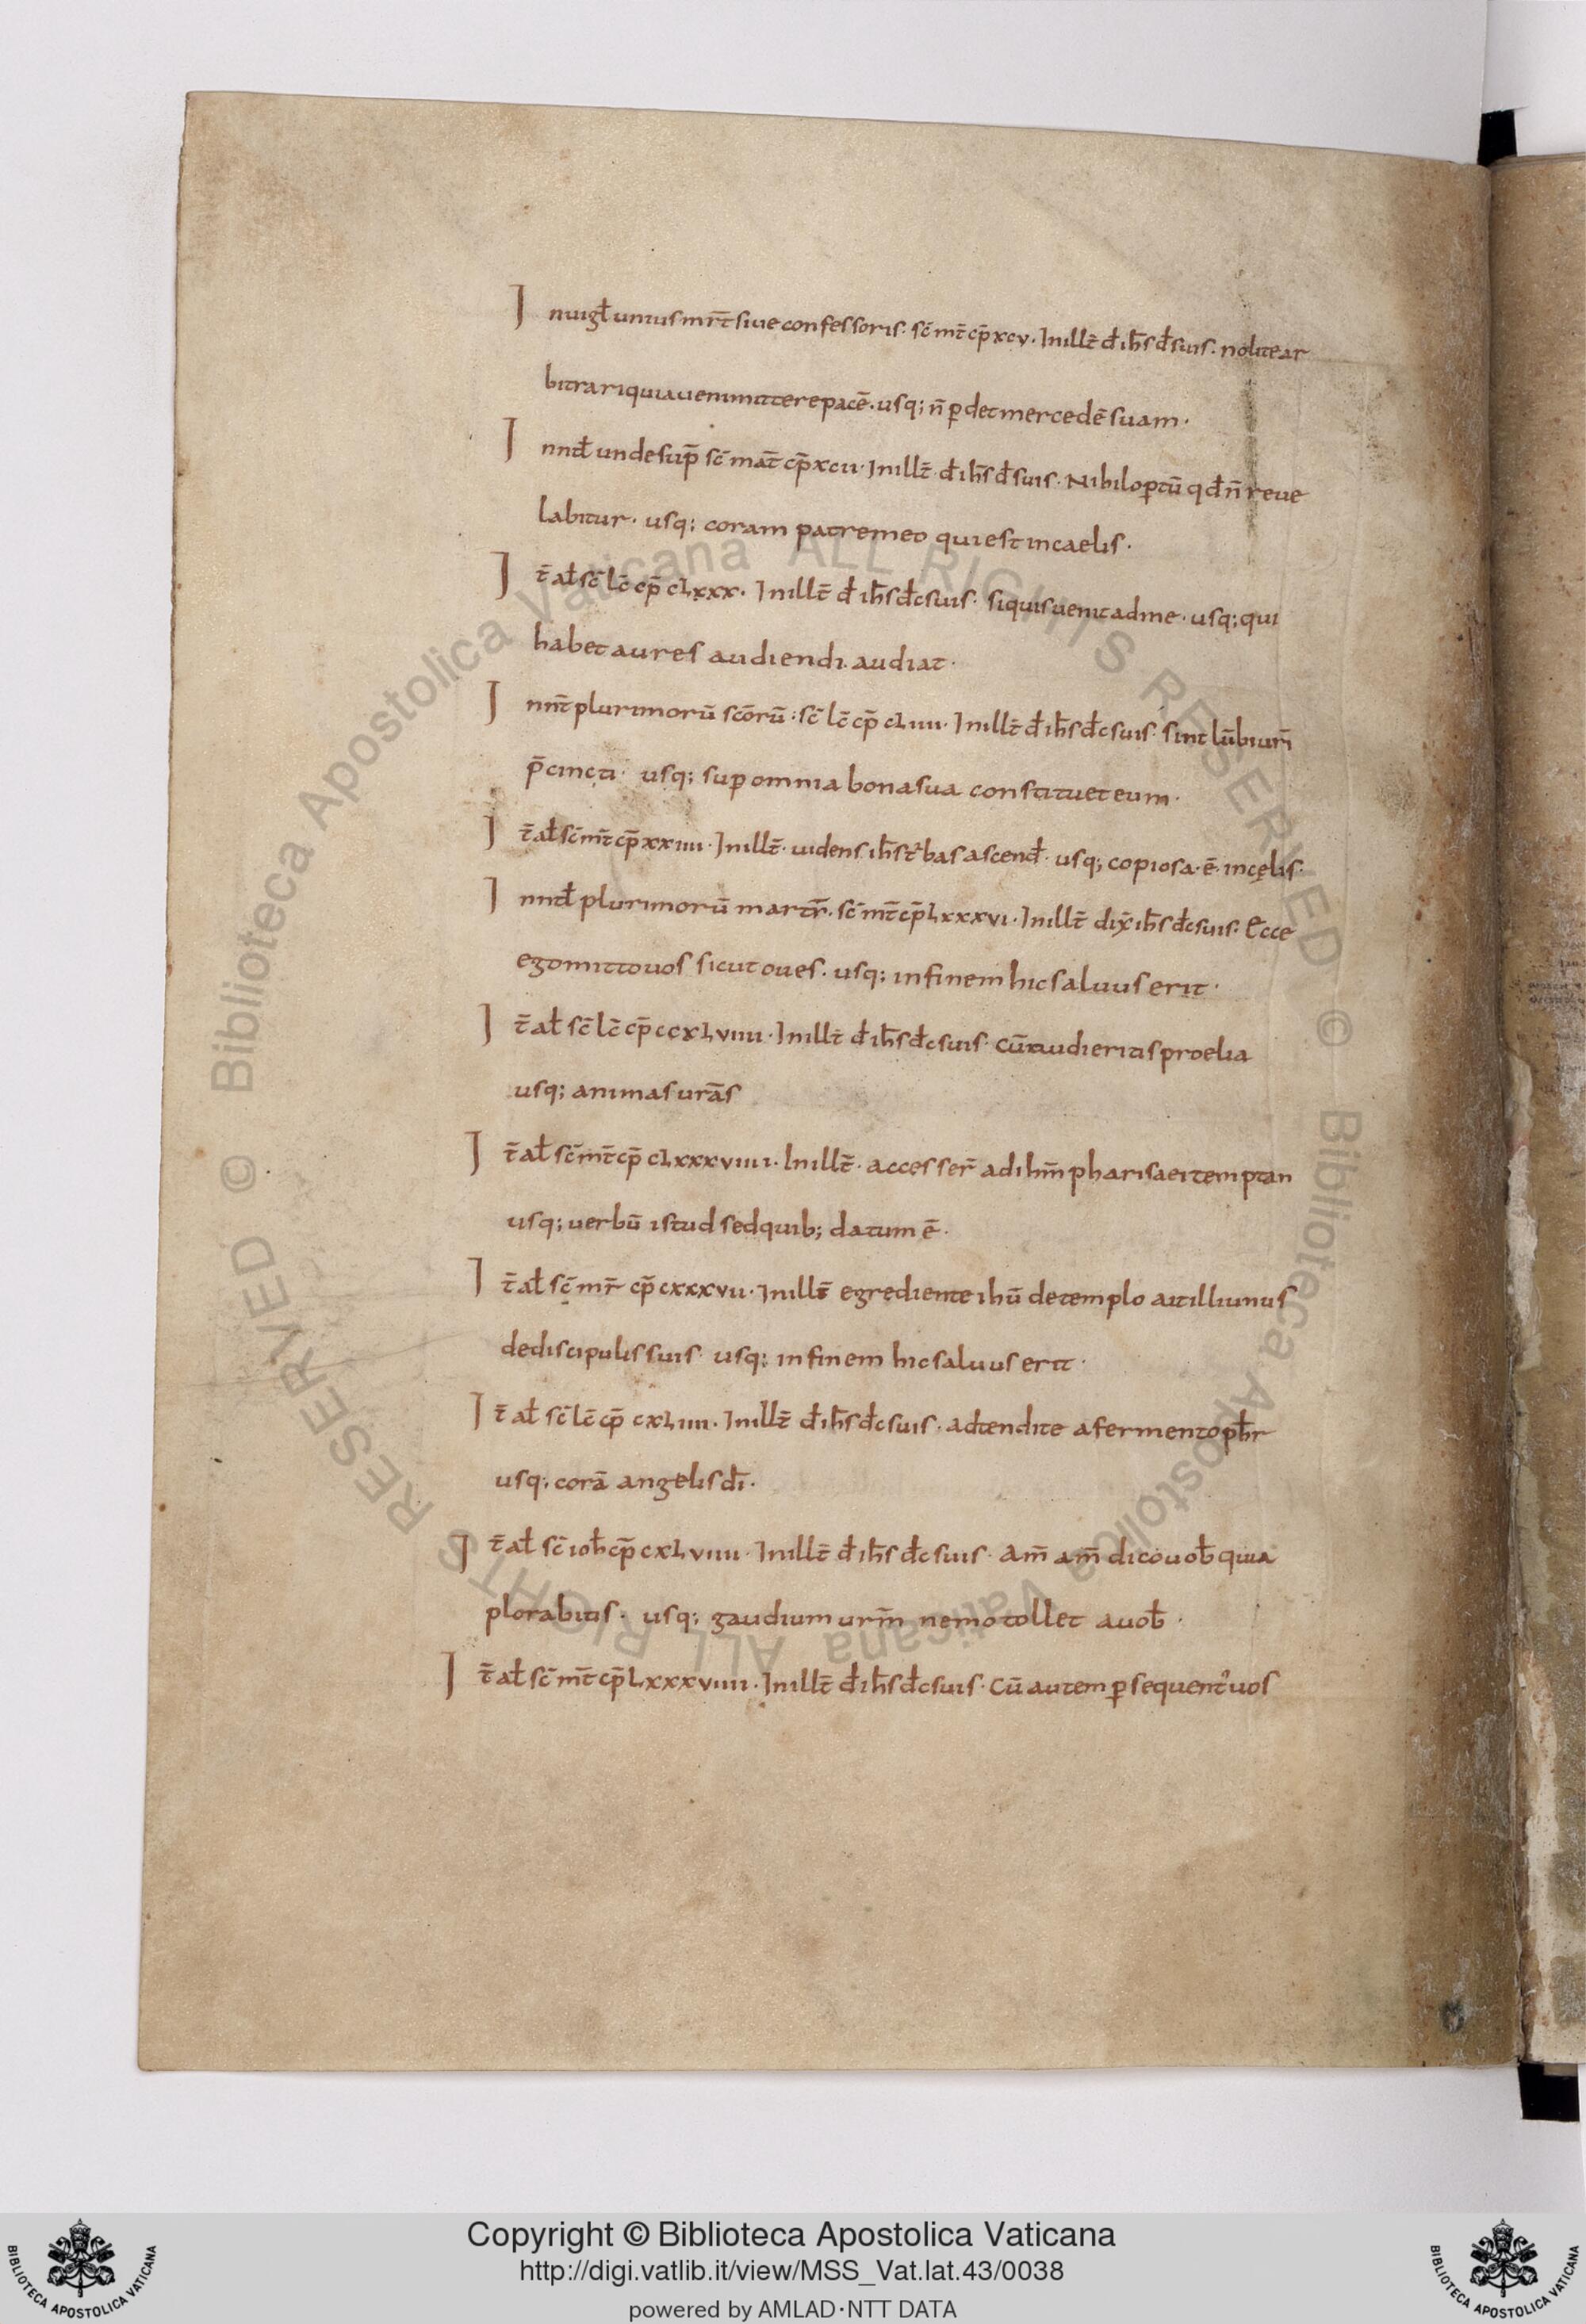 In uigł unius mr̄t siue confessoris. sc̄ mt̄ cp̄ xcv. In illt̄ đ ih̄s đ suis. nolite ar
bitrari quia ueni mittere pacē. usq; n̄ p̲det mercedē suam.
In nađ unde sup̄ sc̄ mat̄ cp̄ xcii. In illt̄ đ ih̄s đ suis. Nihil op̲tū qđ n̄ reue
labitur. usq; coram patre meo qui est in caelis.
It̄ ał sc̄ lc̄ cp̄ clxxx. In illt̄ đ ih̄s đc suis. si quis uenit ad me. usq; qui
habet aures audiendi. audiat.
In nat̄ plurimorū sc̄orū: sc̄ lc̄ cp̄ cliiii. In illt̄ đ ih̄s đc suis. sint lūbi ur̄i
p̄cincti. usq; sup̲ omnia bona sua constituet eum.
It̄ ał sc̄ mt̄ cp̄ xxiiii. In illt̄. uidens ih̄s t'bas ascenđ. usq; copiosa. ē. in cęlis.
In nađ plurimorū martr̄. sc̄ mt̄ cp̄ lxxxvi. In illt̄ dix̄ ih̄s đc suis. Ecce
ego mitto uos sicut oues. usq; in finem hic saluus erit.
It̄ ał sc̄ lc̄ cp̄ ccxlviiii. In illt̄ đ ih̄s đc suis. cū audieritis proelia
usq; animas urās
It̄ ał sc̄ mt̄ cp̄ clxxxviiii. In illt̄. accesser̄ ad ihm̄ pharisaei temptan
usq; uerbū istud sed quib; datum ē.
It̄ ał sc̄ mr̄ cp̄ cxxxvii. In illt̄ egrediente ihū de templo ait illi unus
de discipulis suis. usq; in finem hic saluus erit.
It̄ ał sc̄ lc̄ cp̄ cxliiii. In illt̄ đ ih̄s đc suis. adtendite a fermento pħr
usq; corā angelis dī.
It̄ ał sc̄ ioħ cp̄ cxlviiii. In illt̄ đ ih̄s đc suis. Am̄ am̄ dico uoƀ quia
plorabitis. usq; gaudium urm̄ nemo tollet a uoƀ.
It̄ ał sc̄ mt̄ cp̄ lxxxviiii. In illt̄ đ ih̄s đc suis. Cū autem p̲sequent' uos
Copyright © Biblioteca Apostolica Vaticana
http://digi.vatlib.it/view/MSS_Vat.lat.43/0038
powered by AMLAD·NTT DATA
BIBLIOTECA APOSTOLICA VATICANA
BIBLIOTECA APOSTOLICA VATICANA
© Biblioteca Apostolica Vaticana ALL RIGHTS RESERVED
© Biblioteca Apostolica Vaticana ALL RIGHTS RESERVED